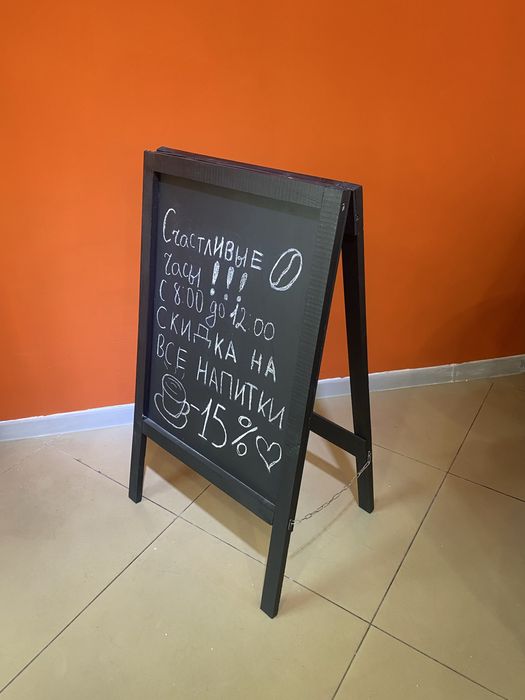 Счастливые
часы !!!
с 8:00 до 12:00
СКИДКА НА
ВСЕ НАПИТКИ
-15%